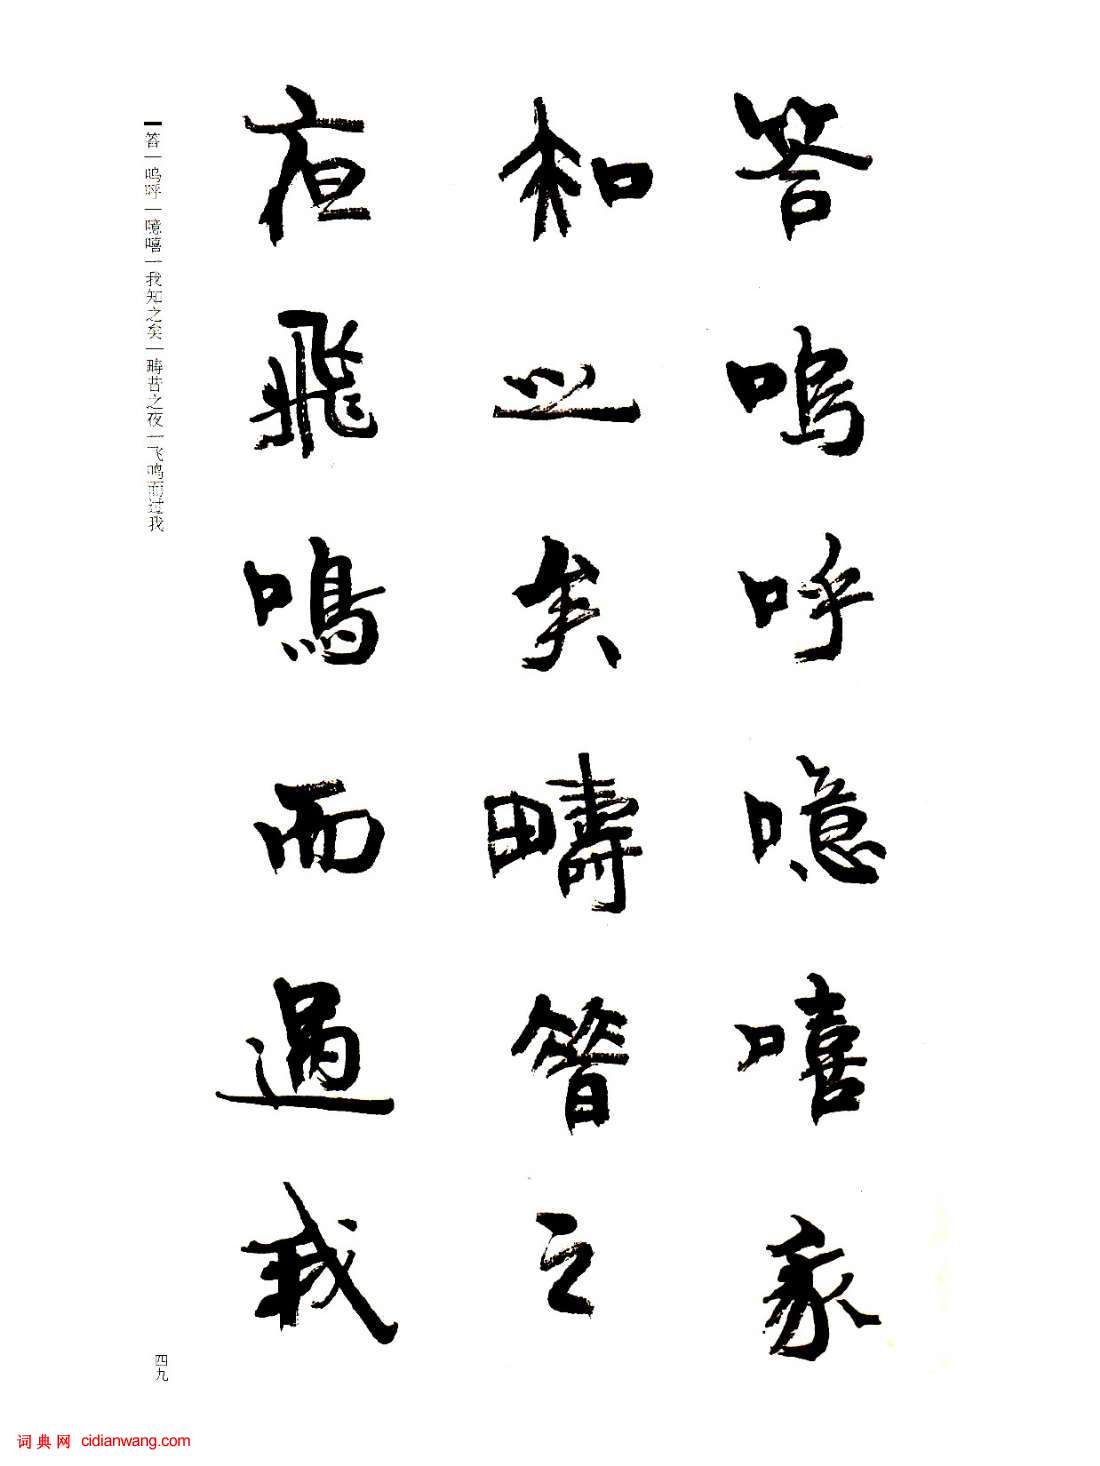 答嗚呼噫嘻我
知之矣疇昔之
夜飛鳴而過我
答—呜呼—噫嘻—我知之矣—畴昔之夜—飞鸣而过我
四九
词典网 cidianwang.com